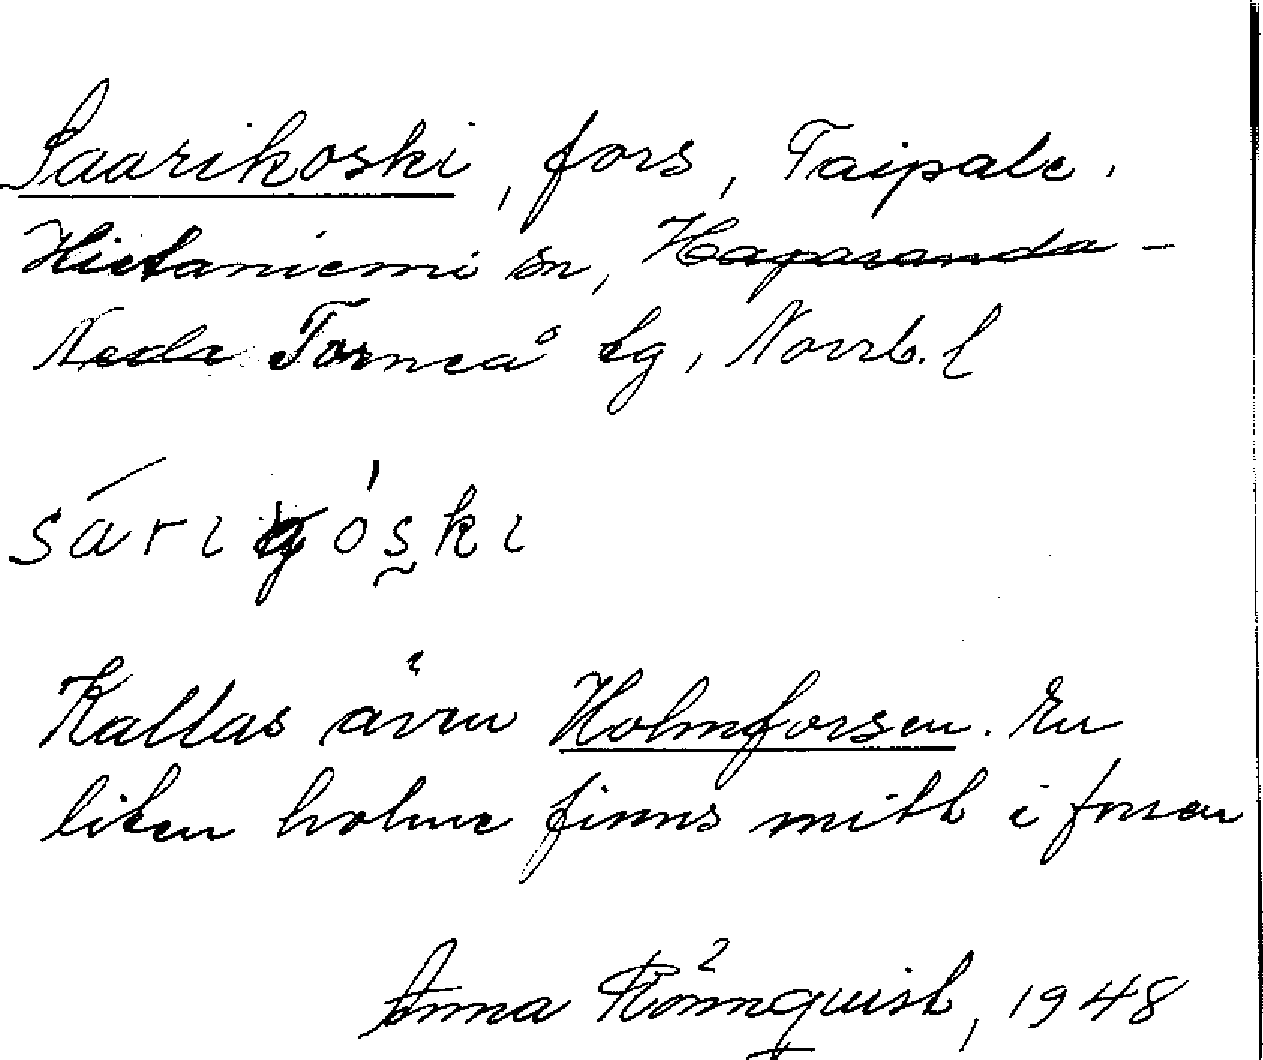 Saarikoski, fors, Taipale.
Hietaniemi sn, Haparanda-
Nedr Torneå tg, Norrb. l
sárigóski
Kallas även Holmforsen. En
liten holme finns mitt i forsen
Anna Rönnquist, 1948